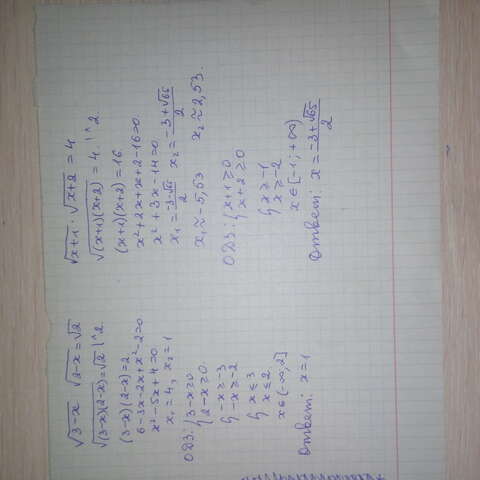 √(3-x) √(2-x) = √2
√((3-x)(2-x)) = √2 |^2.
(3-x)(2-x)=2
6-3x-2x+x²-2=0
x²-5x+4=0
x₁=4, x₂=1
ОДЗ: { 3-x≥0
2-x≥0
{ -x≥-3
-x≥-2
{ x≤3
x≤2
x∈(-∞,2]
Ответ: x=1
√(x+1) · √(x+2) = 4
√((x+1)(x+2)) = 4. |^2.
(x+1)(x+2)=16
x²+2x+x+2-16=0
x²+3x-14=0
x₁=(-3-√65)/2 x₂=(-3+√65)/2
x₁≈-5,53 x₂≈2,53.
ОДЗ: { x+1≥0
x+2≥0
{ x≥-1
x≥-2
x∈[-1;+∞)
Ответ: x=(-3+√65)/2